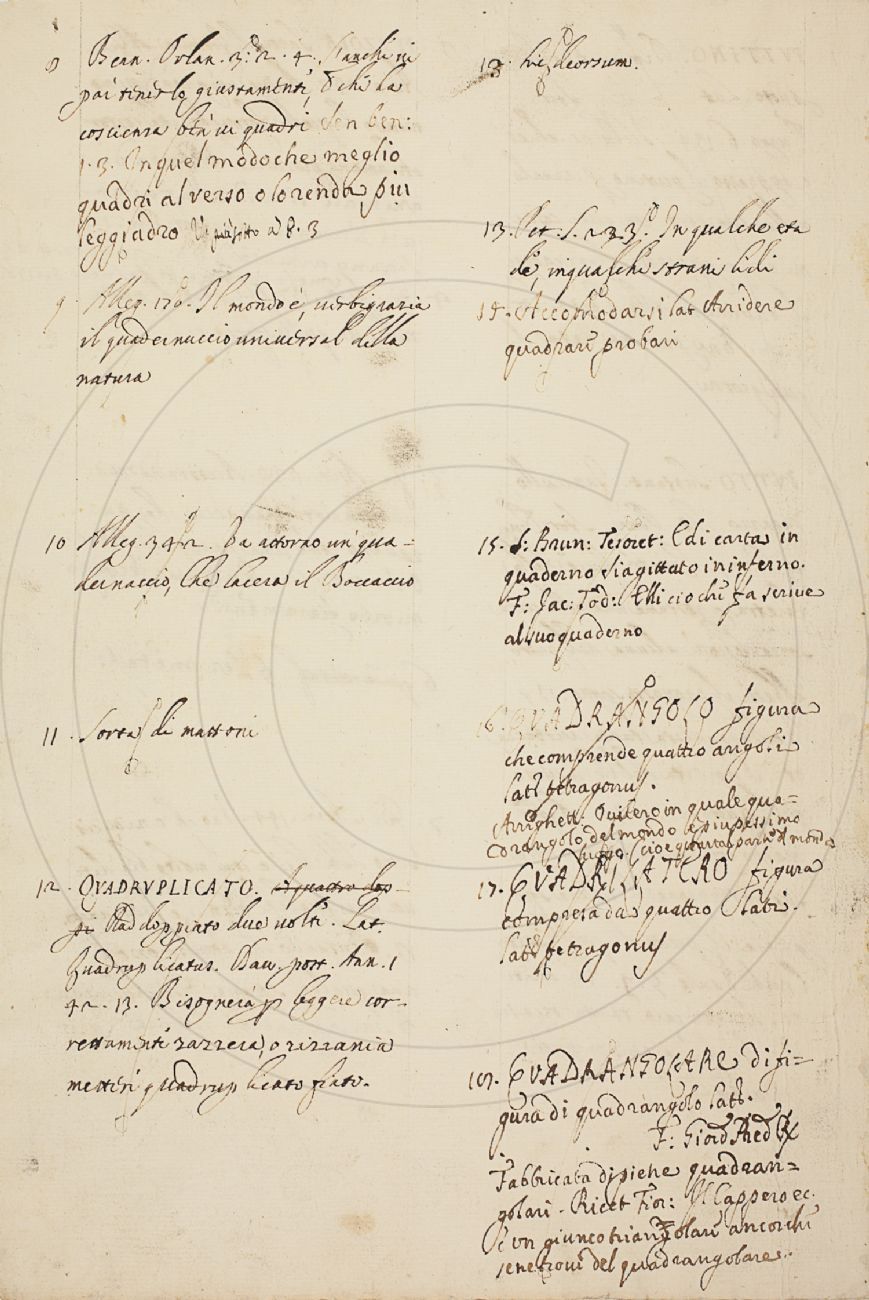 Bern. Orlan. 3. 2. 4.
poi tenerlo giustamente, e chi ha
coscienza ben vi quadri Sen ben:
1. 3. In quel modo che meglio
quadri al verso o lo renda più
leggiadro a 8. 3
9 Alleg. 176. Il mondo è, verbigrazia
il quadernuccio universal della
natura
10 Alleg. 342. Da attorno un qua=
dernaccio, che lacera il Boccaccio
11. Sorta di mattoni
12. QVADRVPLICATO. A quattro dop=
pi Raddoppiato due volte. Lat.
quadruplicatus. Dav. post. Ann. 1
42. 13. Bisogneria leggere cor=
rettamente zazzera, o zizzania
mettere quadruplicato fiato.
12. deorsum.
13. Pet: S. 2. 3. In qualche eta
de, in qualche strani lidi
14. Accomodarsi lat Arridere
quadrare, probari
15. S: Brun: Tesoret: E di carta in
quaderno Sia gittato in inferno.
F: Jac: Tod: Elli cio che fa scrive
al suo quaderno
16. QVADRANGOLO figura
che comprende quattro angoli
lat: tetragonus.
Arrighett: in quale qua=
drangolo del mondo piu pessimo
luogo, cioe quarta parte del mondo
17. QVADRILATERO figura
compresa da quattro lati.
lat: tetragonus
QVADRANGOLARE di fi=
gura di quadrangolo lat:.
F: Giord Pred R
Fabbricata di pietre quadran=
golari. Ricet Fior: Il Cappero ec.
È un giunco triangolare ancorche
se ne trovi del quadrangolare.